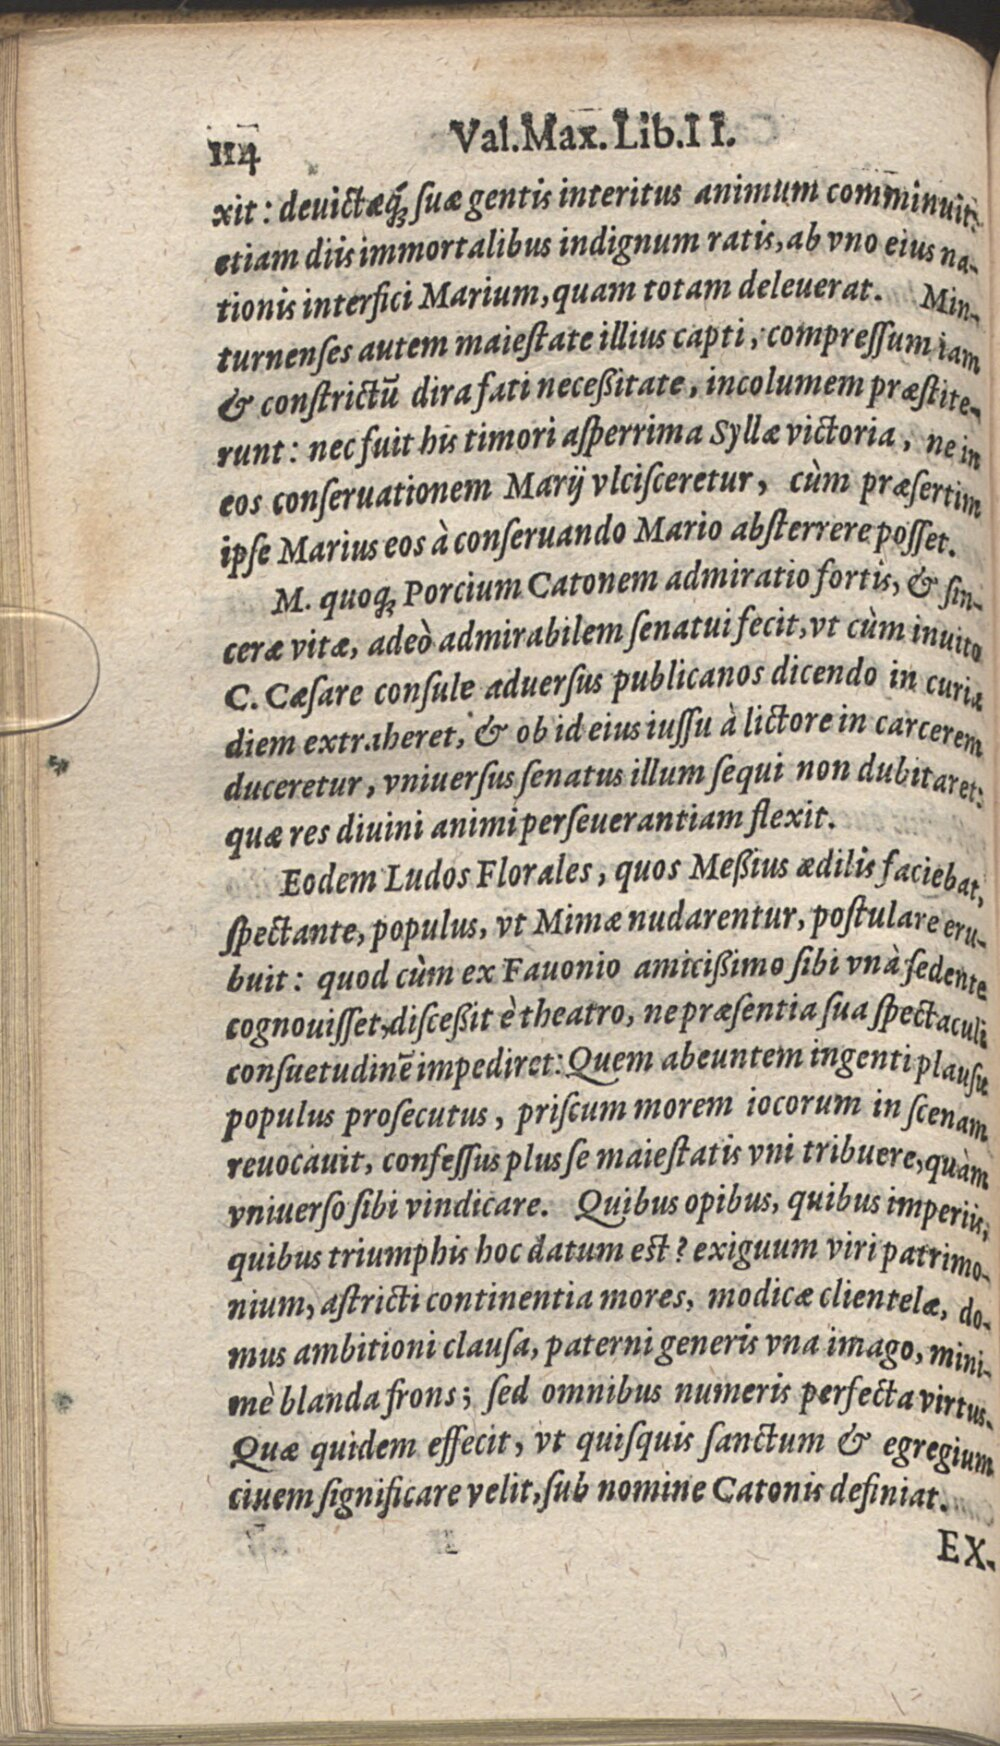 114 Val. Max. Lib. II.
xit: deuictæq́ꝫ ſuæ gentis interitus animum comminuit:
etiam diis immortalibus indignum ratis, ab vno eius na-
tionis interfici Marium, quam totam deleuerat. Min-
turnenſes autem maieſtate illius capti, compreſſum iam
& conſtrictū dira fati neceßitate, incolumem præſtite-
runt: nec fuit his timori aſperrima Syllæ victoria, ne in
eos conſeruationem Marij vlciſceretur, cùm præſertim
ipſe Marius eos à conſeruando Mario abſterrere poſſet.
M. quoqꝫ Porcium Catonem admiratio fortis, & ſin-
ceræ vitæ, adeò admirabilem ſenatui fecit, vt cùm inuito
C. Cæſare conſule aduerſus publicanos dicendo in curia
diem extraheret, & ob id eius iuſſu à lictore in carcerem
duceretur, vniuerſus ſenatus illum ſequi non dubitaret:
quæ res diuini animi perſeuerantiam flexit.
Eodem Ludos Florales, quos Meßius ædilis faciebat,
ſpectante, populus, vt Mimæ nudarentur, poſtulare eru-
buit: quod cùm ex Fauonio amicißimo ſibi vnà ſedente
cognouiſſet, diſceßit è theatro, ne præſentia ſua ſpectaculi
conſuetudinē impediret: Quem abeuntem ingenti plauſu
populus proſecutus, priſcum morem iocorum in ſcenam
reuocauit, confeſſus plus ſe maieſtatis vni tribuere, quàm
vniuerſo ſibi vindicare. Quibus opibus, quibus imperiis,
quibus triumphis hoc datum est? exiguum viri patrimo-
nium, aſtricti continentia mores, modicæ clientelæ, do-
mus ambitioni clauſa, paterni generis vna imago, mini-
mè blanda frons; ſed omnibus numeris perfecta virtus.
Quæ quidem effecit, vt quiſquis ſanctum & egregium
ciuem ſignificare velit, ſub nomine Catonis definiat.
EX-